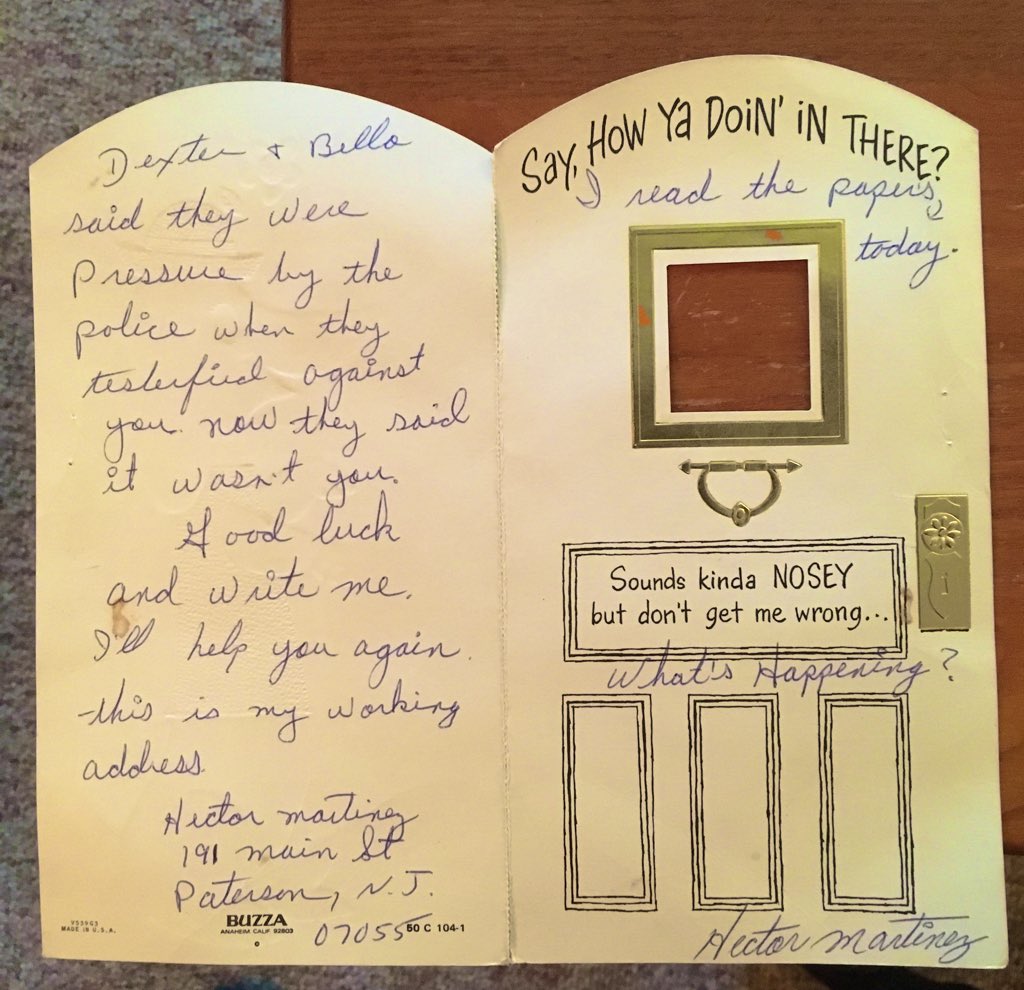 Dexter + Bello
said they were
pressure by the
police when they
testerfied against
you. now they said
it wasn't you.
Good luck
and write me.
I'll help you again.
this is my working
address
Hector martinez
191 main St
Paterson, N.J.
07055
V939G3
MADE IN U.S.A.
BUZZA
ANAHEIM CALIF 92803
50 C 104-1
SAY, HOW YA DOIN' IN THERE?
I read the papers
today.
Sounds kinda NOSEY
but don't get me wrong...
What's Happening?
Hector martinez